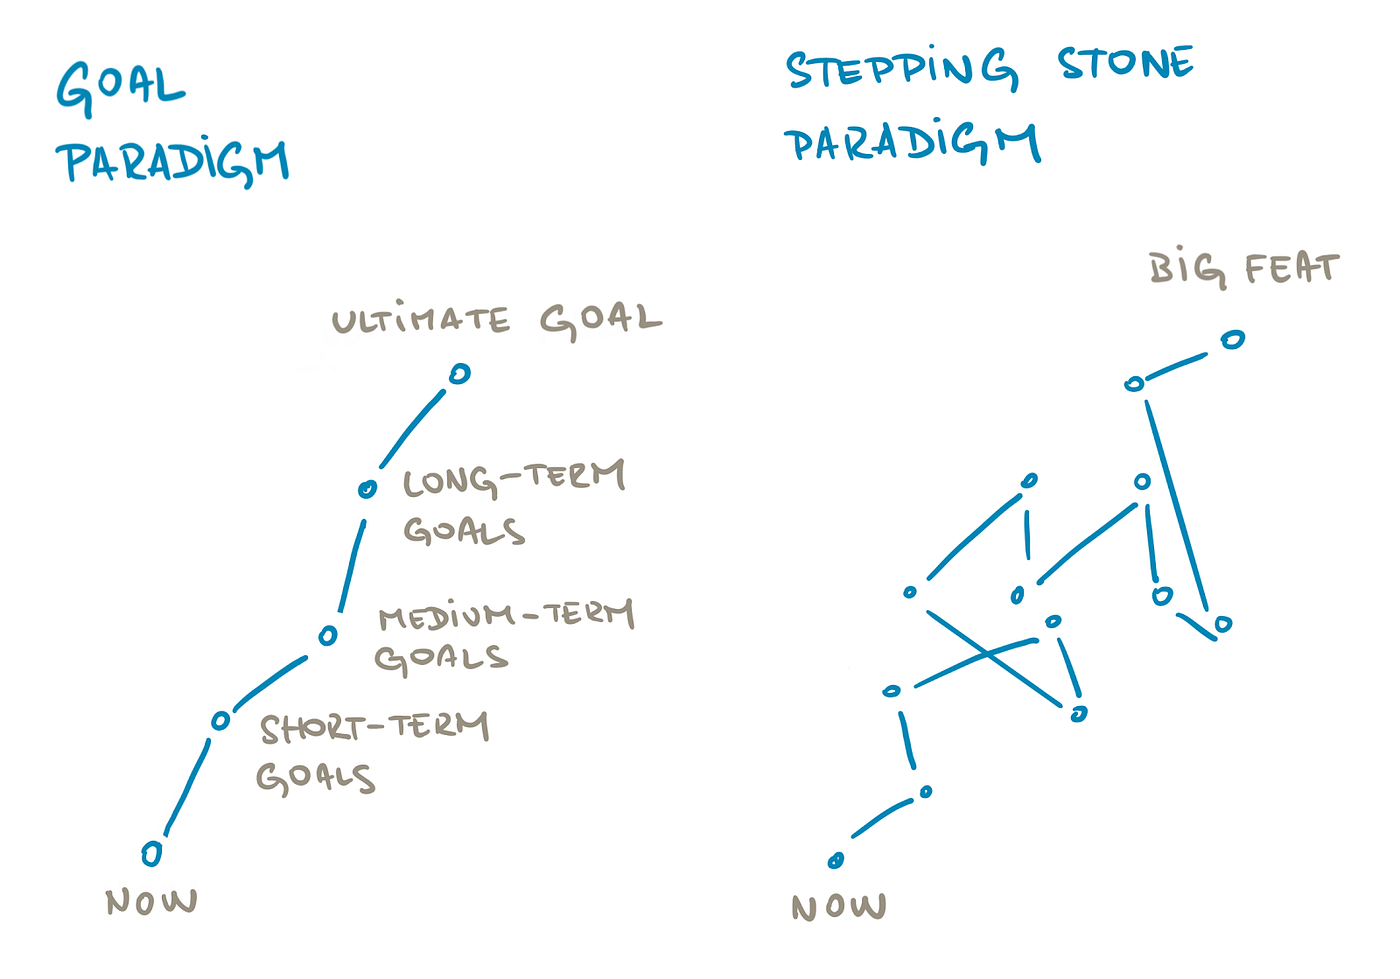 GOAL
PARADiGM
ULTiMATE GOAL
LONG-TERM
GOALS
MEDiUM-TERM
GOALS
SHORT-TERM
GOALS
NOW
STEPPiNG STONE
PARADiGM
BiG FEAT
NOW